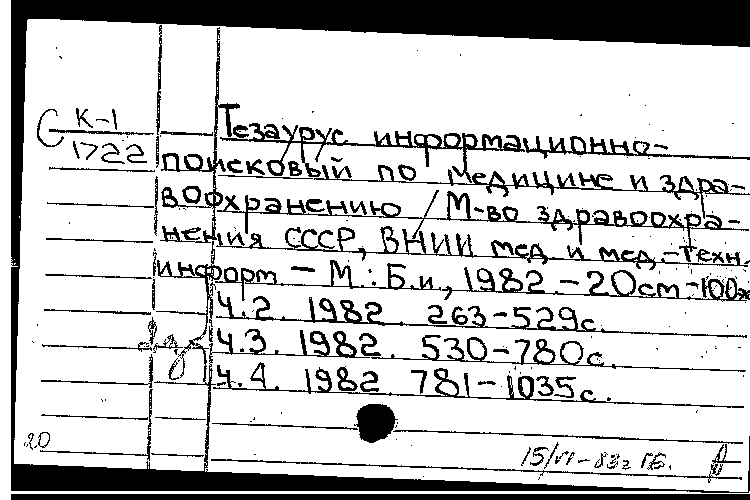 С К-1
1722
Тезаурус информационно-
поисковый по медицине и здра-
воохранению / М-во здравоохра-
нения СССР, ВНИИ мед. и мед.-техн.
информ – М.: Б.и., 1982. – 20см – 100
Ч.2. 1982. 263-529с.
Ч.3. 1982. 530-780с.
Ч.4. 1982 781-1035с.
20
15/VI-83г ГБ.